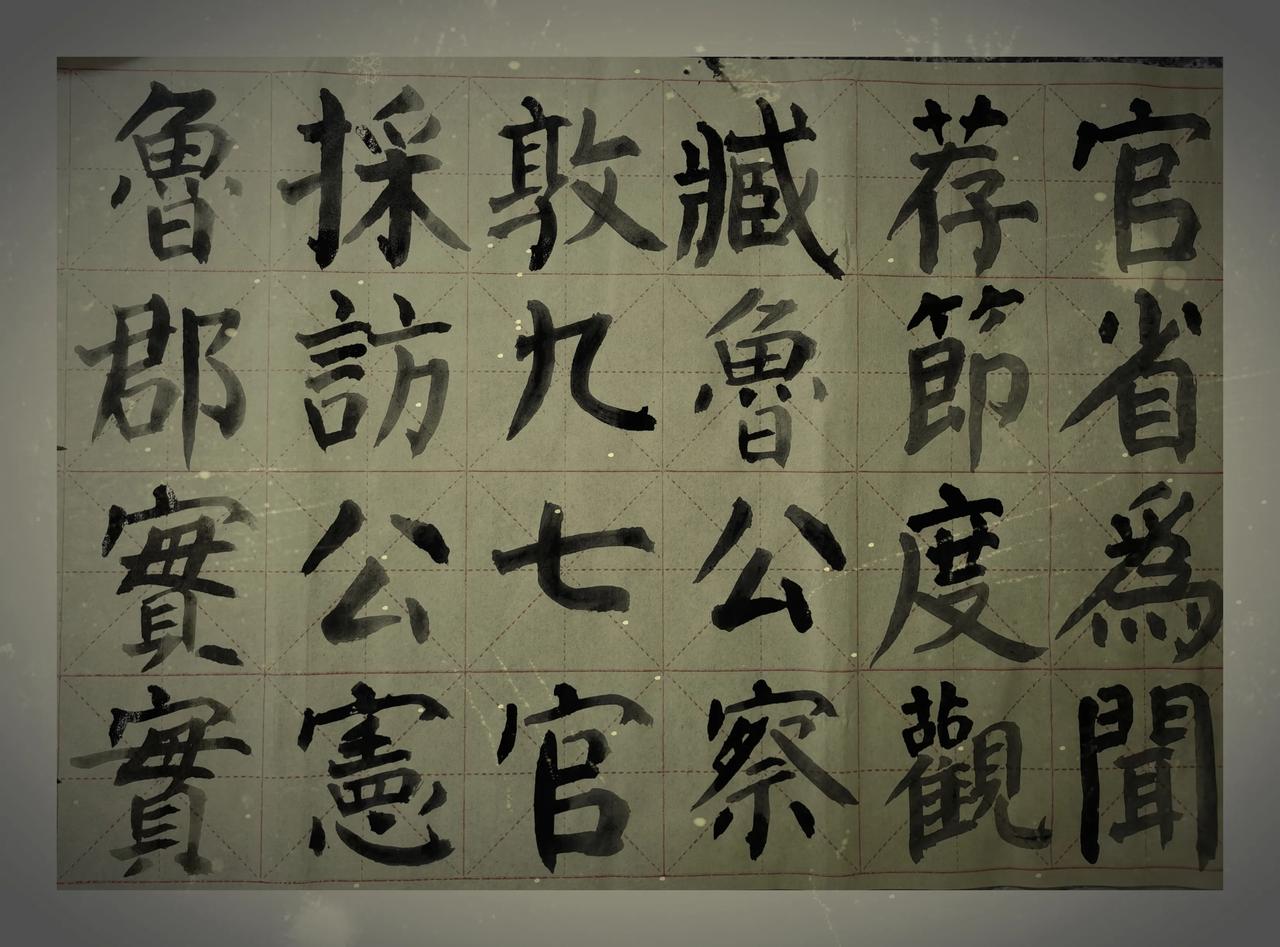 官省為聞
荐節度觀
臧魯公察
敦九七官
採訪公憲
魯郡實實